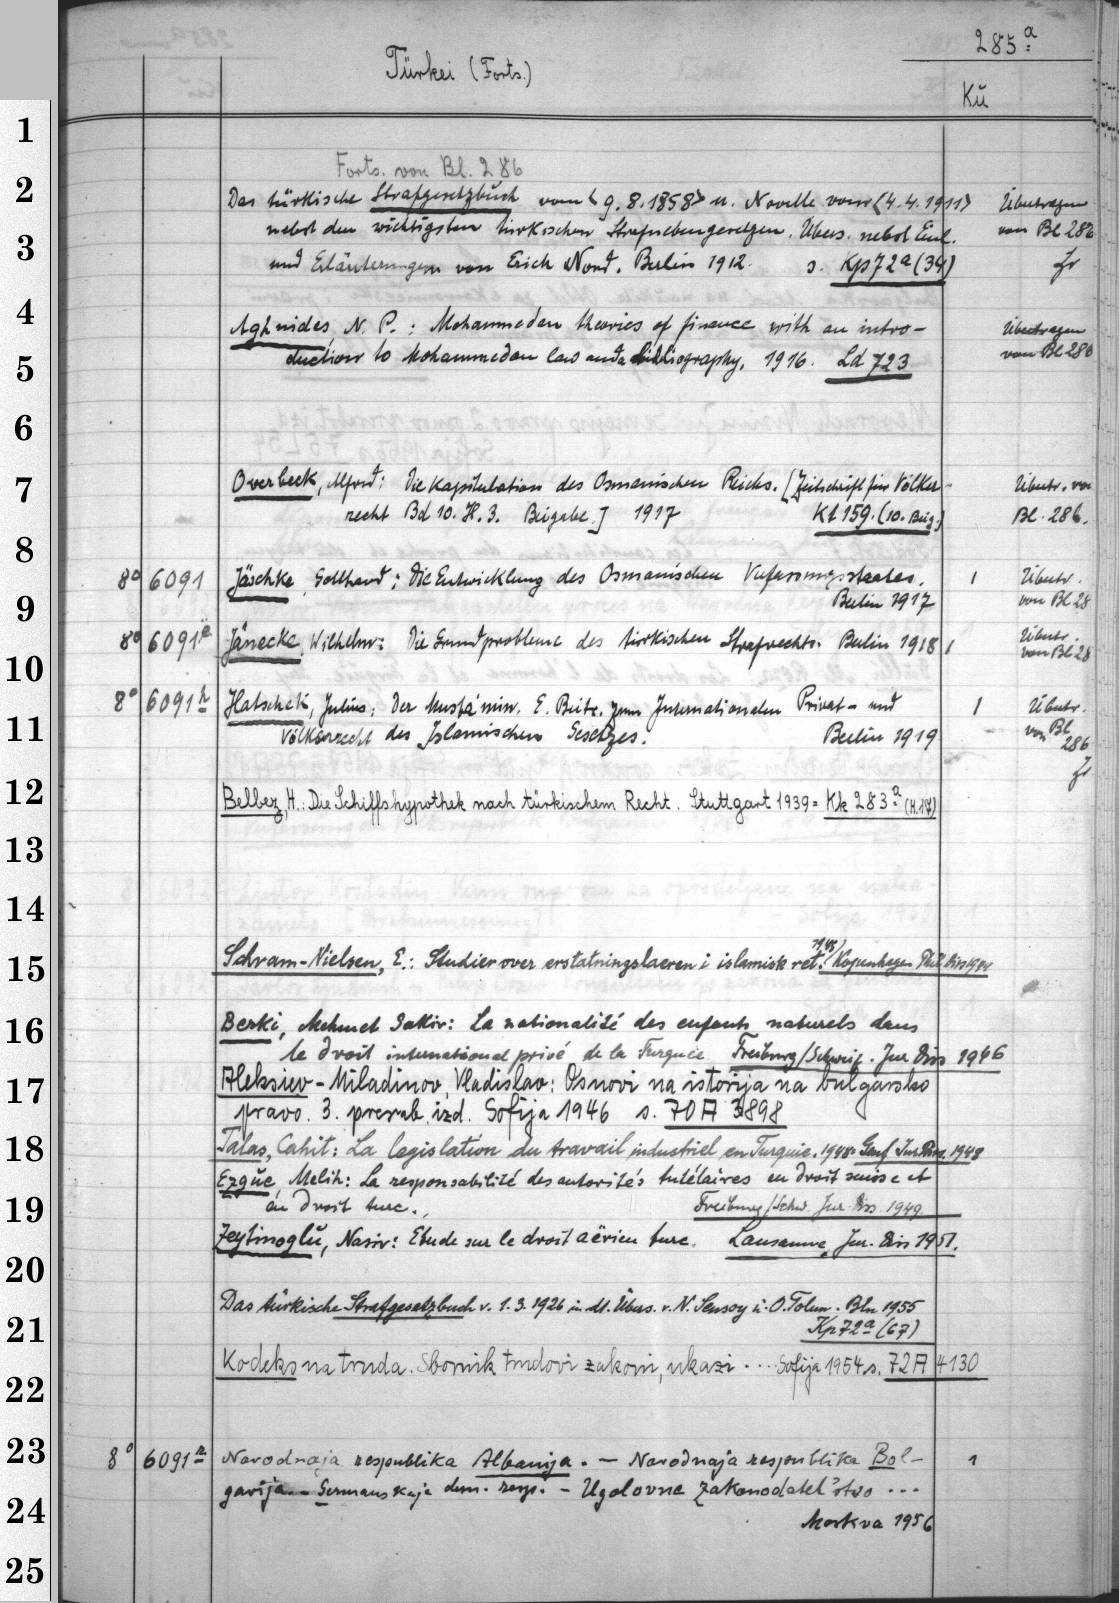 285 a
Türkei (Forts.)
Kü
1
Forts. von Bl. 286
2
Das türkische Strafgesetzbuch vom <9.8.1858> u. Novelle vom <4.4.1911> Übertragen
nebst den wichtigsten türkischen Strafnebengesetzen. Übers. nebst Einl. von Bl 286
3
und Erläuterungen von Erich Nord. Berlin 1912. s. Kp 72a (34)
4
Aghnides, N. P.: Mohammedan theories of finance with an intro- Übertragen
duction to Mohammedan law and a bibliography, 1916. Ld 723 von Bl 286
5
6
7
Overbeck, Alfred: Die Kapitulation des Osmanischen Reichs. [Zeitschrift für Völker- Übertr. von
recht Bd 10. H. 3. Beigabe.] 1917 Kt 159. (10. Beig.) Bl. 286.
8
8° 6091 Jäschke, Gotthard: Die Entwicklung des Osmanischen Verfassungsstaates. 1 Übertr.
Berlin 1917 von Bl 28
9
8° 6091 e Jänecke, Wilhelm: Die Grundprobleme des türkischen Strafrechts. Berlin 1918 1 Übertr.
von Bl 28
10
8° 6091 h Hatschek, Julius: Der Mustamin. E. Beitr. zum Internationalen Privat- und 1 Übertr.
11
Völkerrecht des Islamischen Gesetzes. Berlin 1919 von Bl
286
12
Belbez, H.: Die Schiffshypothek nach türkischem Recht. Stuttgart 1939 = Kk 283 a (H. 17)
13
14
1945
15
Schram-Nielsen, E.: Studier over erstatningslaeren i islamisk ret. Kopenhagen Phil. Diss 1944
16
Berki, Mehmet Sakir: La nationalité des enfants naturels dans
le droit international privé de la Turquie. Freiburg/Schweiz. Jur. Diss 1946
17
Aleksiev-Miladinov, Vladislav: Osnovi na istorija na bulgarsko
pravo. 3. prerab. izd. Sofija 1946 s. 70 A 3898
18
Talas, Cahit: La legislation du travail industriel en Turquie. 1948. Genf Jur. Diss. 1948
Ezgüe, Melih: La responsabilité des autorités tutélaires en droit suisse et
19
en droit turc. Freiburg/Schw. Jur. Diss. 1949
Zeytinoglŭ, Nasir: Etude sur le droit aérien turc. Lausanne, Jur. Diss 1951.
20
Das türkische Strafgesetzbuch v. 1.3.1926 in dt. Übers. v. N. Sensoy u. O. Tolun. Bln 1955
21
Kp 72 a (67)
Kodeks na truda. Sbornik trudovi zakoni, ukazi .... Sofija 1954 s. 72 A 4130
22
23
8° 6091 n Narodnaja respublika Albanija. - Narodnaja respublika Bol- 1
garija. - Germanskaja dem. resp. - Ugolovne zakonodatel'stvo ...
24
Moskva 1956
25